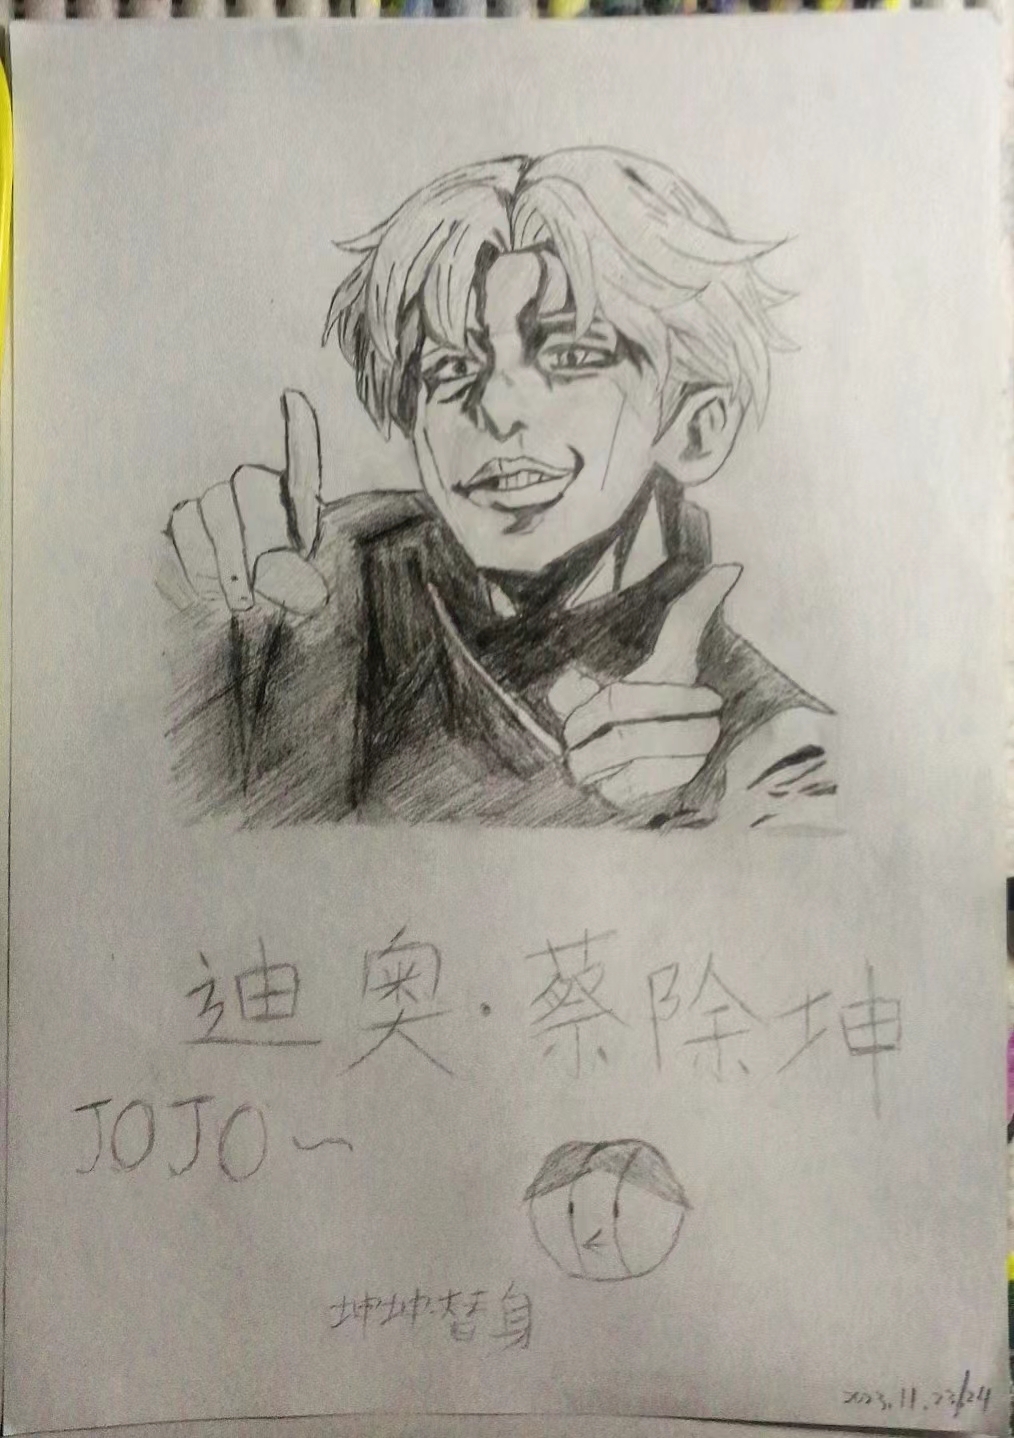 迪奥·蔡除坤
JOJO~
坤坤替身
2023.11.23/24